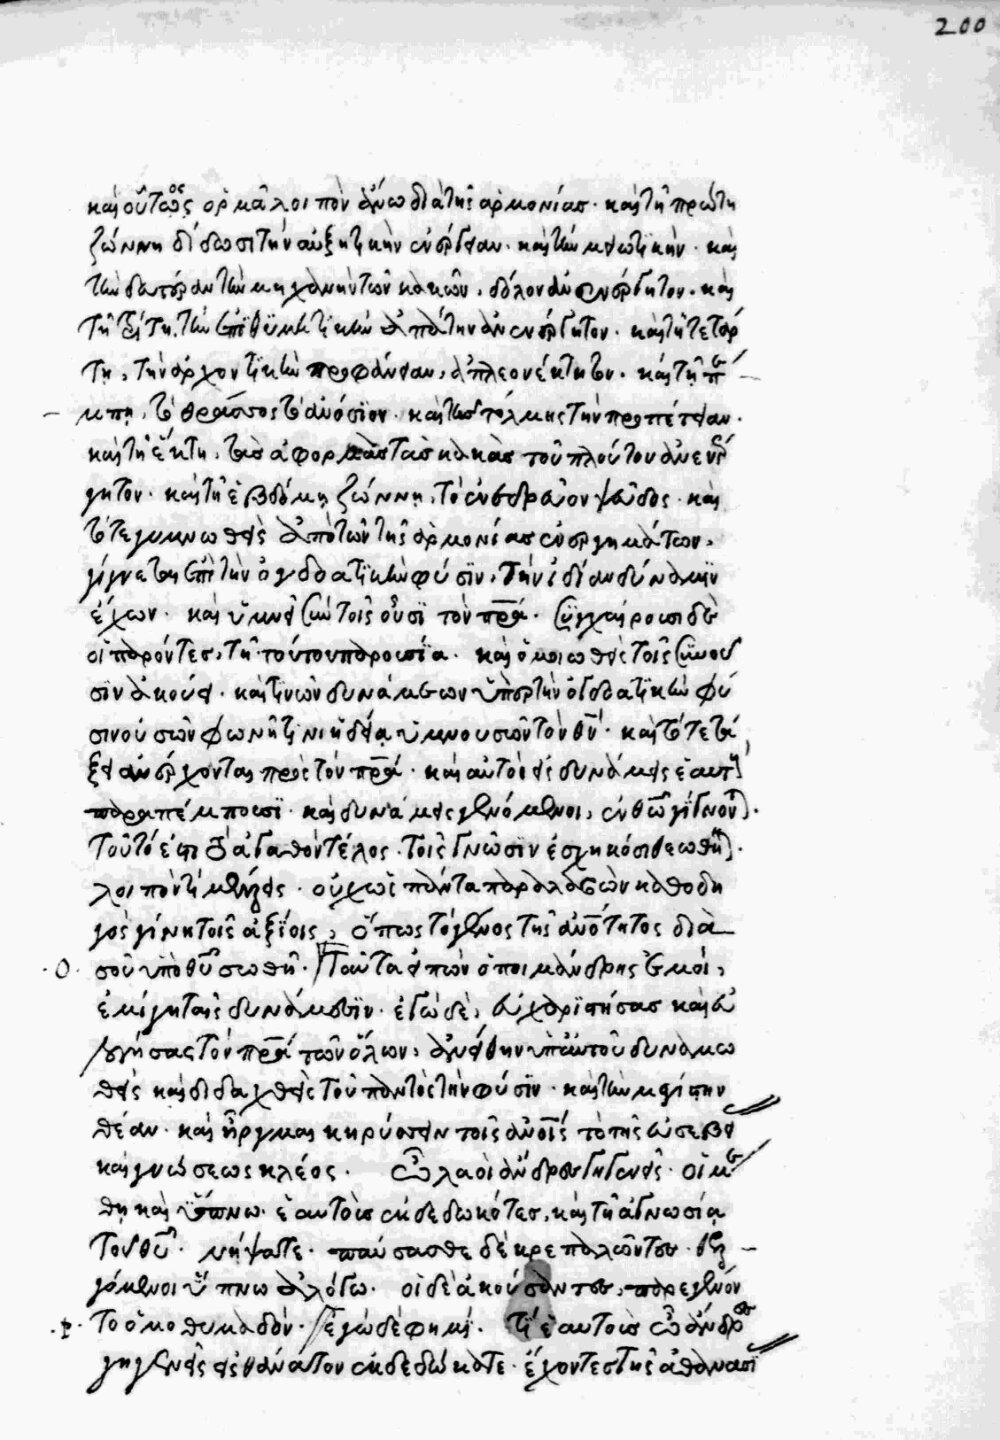 200
καὶ οὕτως ὁρμᾷ λοιπὸν ἄνω διὰ τῆς ἁρμονίας· καὶ τῇ πρώτῃ
ζώνῃ δίδωσι τὴν αὐξητικὴν ἐνέργειαν· καὶ τὴν μειωτικήν· καὶ
τῇ δευτέρᾳ τὴν μηχανὴν τῶν κακῶν, δόλον ἀνενέργητον· καὶ
τῇ τρίτῃ, τὴν ἐπιθυμητικὴν ἀπάτην ἀνενέργητον· καὶ τῇ τετάρ
τῃ, τὴν ἀρχοντικὴν προφανίαν, ἀπλεονέκτητον· καὶ τῇ πέ
μπτῃ, τὸ θράσος τὸ ἀνόσιον· καὶ τῆς τόλμης τὴν προπέτειαν·
καὶ τῇ ἕκτῃ, τὰς ἀφορμὰς τὰς κακὰς τοῦ πλούτου ἀνενέρ
γητον· καὶ τῇ ἑβδόμῃ ζώνῃ, τὸ ἐνεδρεῦον ψεῦδος· καὶ
τότε γυμνωθεὶς ἀπὸ τῶν τῆς ἁρμονίας ἐνεργημάτων,
γίγνεται ἐπὶ τὴν ὀγδοατικὴν φύσιν, τὴν ἰδίαν δύναμιν
ἔχων· καὶ ὑμνεῖ σὺν τοῖς οὖσι τὸν πρα· συγχαίρουσι δὲ
οἱ παρόντες, τῇ τούτου παρουσίᾳ· καὶ ὁμοιωθεὶς τοῖς συνοῦ
σιν ἀκούει· καὶ τινῶν δυνάμεων ὑπὲρ τὴν ὀγδοατικὴν φύ
σιν οὐσῶν φωνῇ τινι ἡδείᾳ ὑμνουσῶν τὸν θν· καὶ τότε τά
ξει ἀνέρχονται πρὸς τὸν πρα· καὶ αὐτοὶ εἰς δυνάμεις ἑαυτ
παραπέμπουσι· καὶ δυνάμεις γενόμενοι, ἐν θω γίγνον
τοῦτό ἐστι τὸ ἀγαθὸν τέλος τοῖς γνῶσιν ἐσχηκόσι θεωθῆ
λοιπὸν τί μέλλεις· οὐχ ὡς πάντα παραλαβὼν καθοδη
γὸς γίνῃ τοῖς ἀξίοις, ὅπως τὸ γένος τῆς ἀνοτητος διὰ
·Ο· σοῦ ὑπὸ θυ σωθῇ· Ταῦτα εἰπὼν ὁ ποιμάνδρης ἐμοί,
ἐμίγη ταῖς δυνάμεσιν· ἐγὼ δὲ, εὐχαριστήσας καὶ εὐ
λογήσας τὸν πρα τῶν ὅλων, ἀνείθην ὑπ' αὐτοῦ δυναμω
θεὶς καὶ διδαχθεὶς τοῦ παντὸς τὴν φύσιν· καὶ τὴν μεγίστην
θέαν· καὶ ἦργμαι κηρύσσειν τοῖς ἀνοις τὸ τῆς εὐσεβεί
καὶ γνώσεως κλέος· Ὦ λαοὶ ἄνδρες γηγενεῖς· οἱ μέ
θῃ καὶ ὕπνῳ ἑαυτοὺς ἐκδεδωκότες, καὶ τῇ ἀγνωσίᾳ
τοῦ θυ· νήψατε· παύσασθε δὲ κρεπαλῶντες· θελ
γόμενοι ὕπνῳ ἀλόγῳ· οἱ δὲ ἀκούσαντες, παρεγένον
·Ρ· το ὁμοθυμαδόν· ἐγὼ δέ φημι· τί ἑαυτοὺς ὦ ἄνδρες
γηγενεῖς εἰς θάνατον ἐκδεδώκατε· ἔχοντες τῆς ἀθανασί